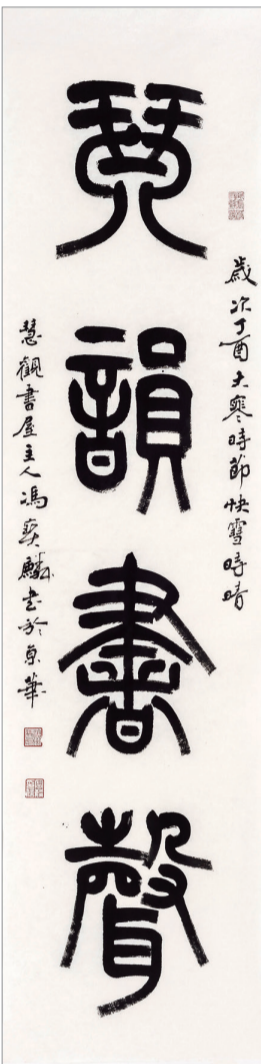 琴韻書聲
歲次丁酉大寒時節快雪時晴
慧觀書屋主人馮奕麟書於京華